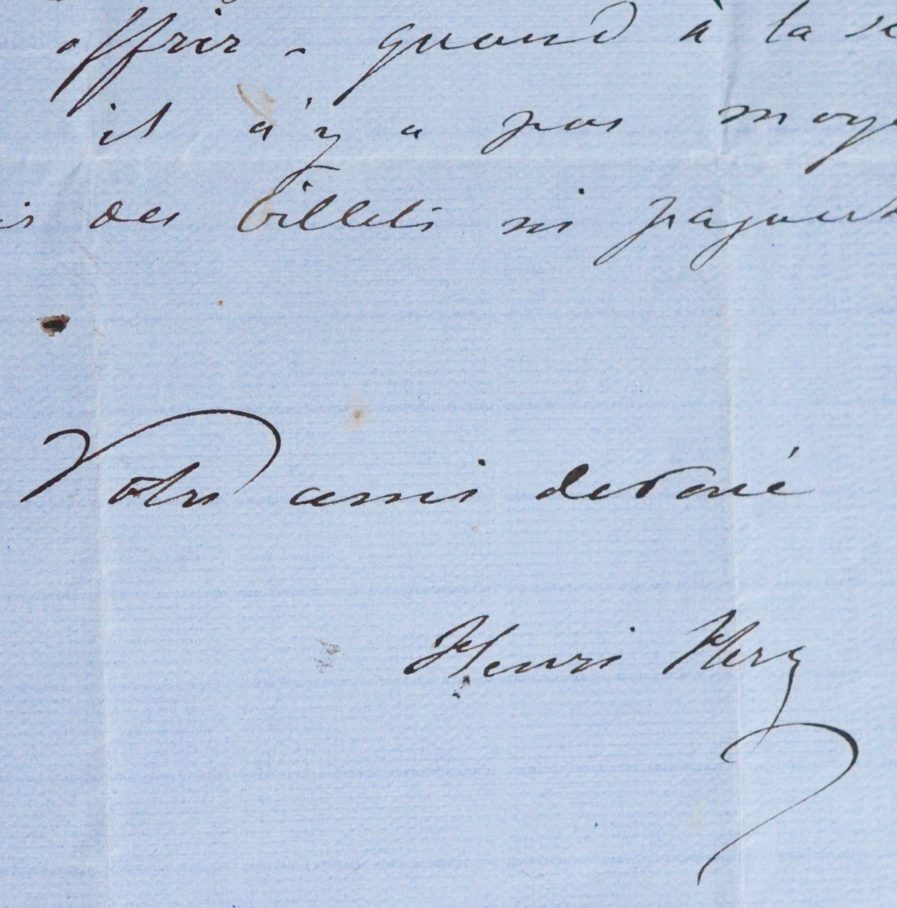 offrir - quand à la
il n'y a pas moye
des billets ni
Votre ami dévoué
Henri Herz